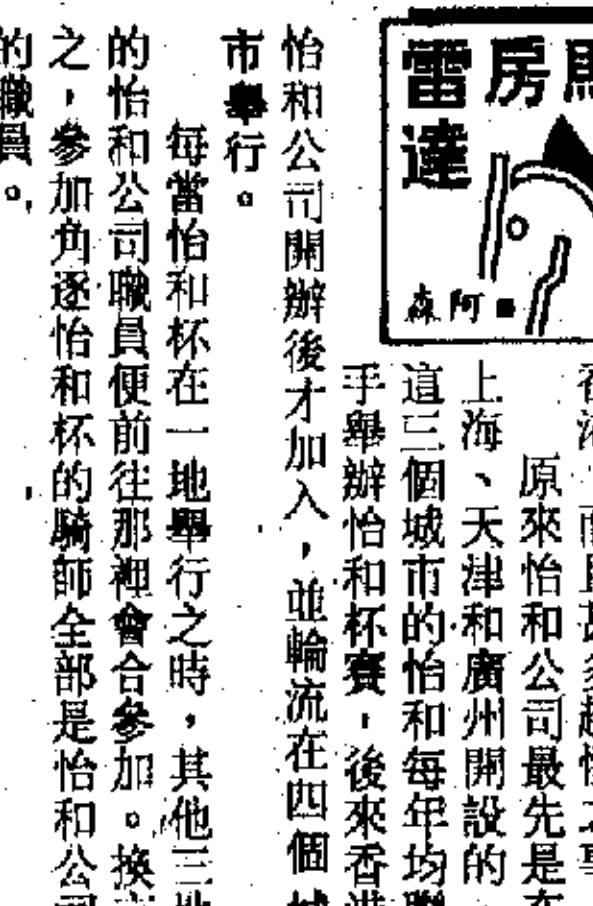 馬房
雷達
阿森
原來怡和公司最先是在
上海、天津和廣州開設的
這三個城市的怡和每年均聯
手舉辦怡和杯賽，後來香港
怡和公司開辦後才加入，並輪流在四個城
市舉行。
每當怡和杯在一地舉行之時，其他三地
的怡和公司職員便前往那裡會合參加。換言
之，參加角逐怡和杯的騎師全部是怡和公司
的職員。